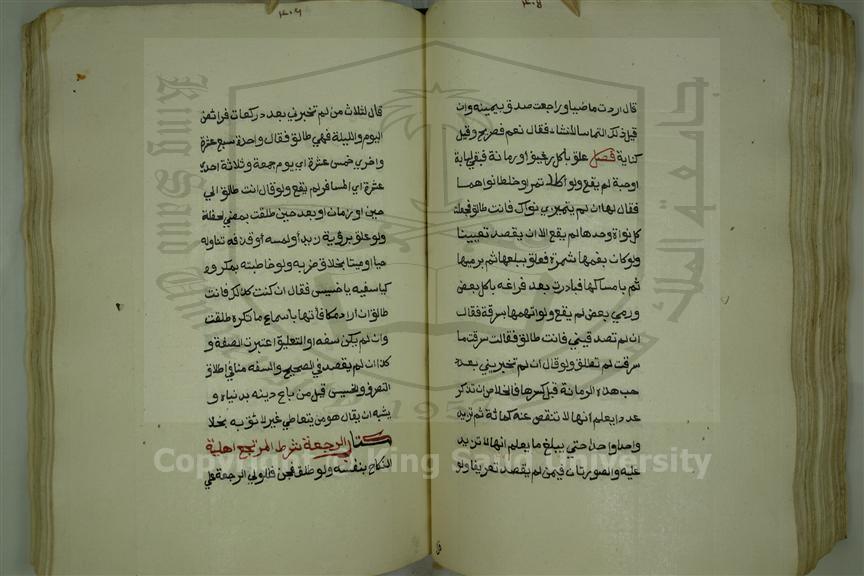 ٤٠٨
قال اردت ماضيا وراجعت صدق بيمينه وان
قيل ذلك التماسا لانشاء فقال نعم فصريح وقيل
كناية فصل علق باكل رغيف او رمانة فبقي لبابة
او حبة لم يقع ولو اكلا تمرا وخلطا نواهما
فقال لها ان لم تميزي نواك فانت طالق فجعلت
كل نواة وحدها لم يقع الا ان يقصد تعيينا
ولو كان بفمها تمرة فعلق ببلعها ثم برميها
ثم بامساكها فبادرت بعد فراغه باكل بعض
ورمي بعض لم يقع ولو اتهمها بسرقة فقال
ان لم تصدقيني فانت طالق فقالت سرقت ما
سرقت لم تطلق ولو قال ان لم تخبريني بعدد
حب هذه الرمانة قبل كسرها فالخلاص ان تذكر
عددا يعلم انها لا تنقص عنه كمائة ثم تزيد
واحدا واحدا حتي يبلغ ما يعلم انها لا تزيد
عليه والصورتان فيمن لم يقصد تعريفا ولو
٤٠٩
قال لثلاث من لم تخبرني بعدد ركعات فرائض
اليوم والليلة فهي طالق فقال واحدة سبع عشرة
واخري خمس عشرة اي يوم جمعة وثلاثة احدي
عشرة اي المسافر لم يقع ولو قال انت طالق الي
حين او زمان او بعد حين طلقت بمضي لحظة
ولو علق برؤية زيد او لمسه او قذفه تناوله
حيا او ميتا بخلاف ضربه ولو خاطبته بمكروه
كيا سفيه يا خسيس فقال ان كنت كذلك فانت
طالق ان اراد مكافاتها باسماع ما تكره طلقت
وان لم يكن سفه او التعليق اعتبرت الصفة و
كذا ان لم يقصد في الصحيح والسفه منافي اطلاق
التصرف والخسيس قيل من باع دينه بدنياه و
يشبه ان يقال هو من يتعاطي غير لائق به بخلا
كتاب الرجعة شرط المرتجع اهلية
النكاح بنفسه ولو طلق فجن فللولي الرجعة في